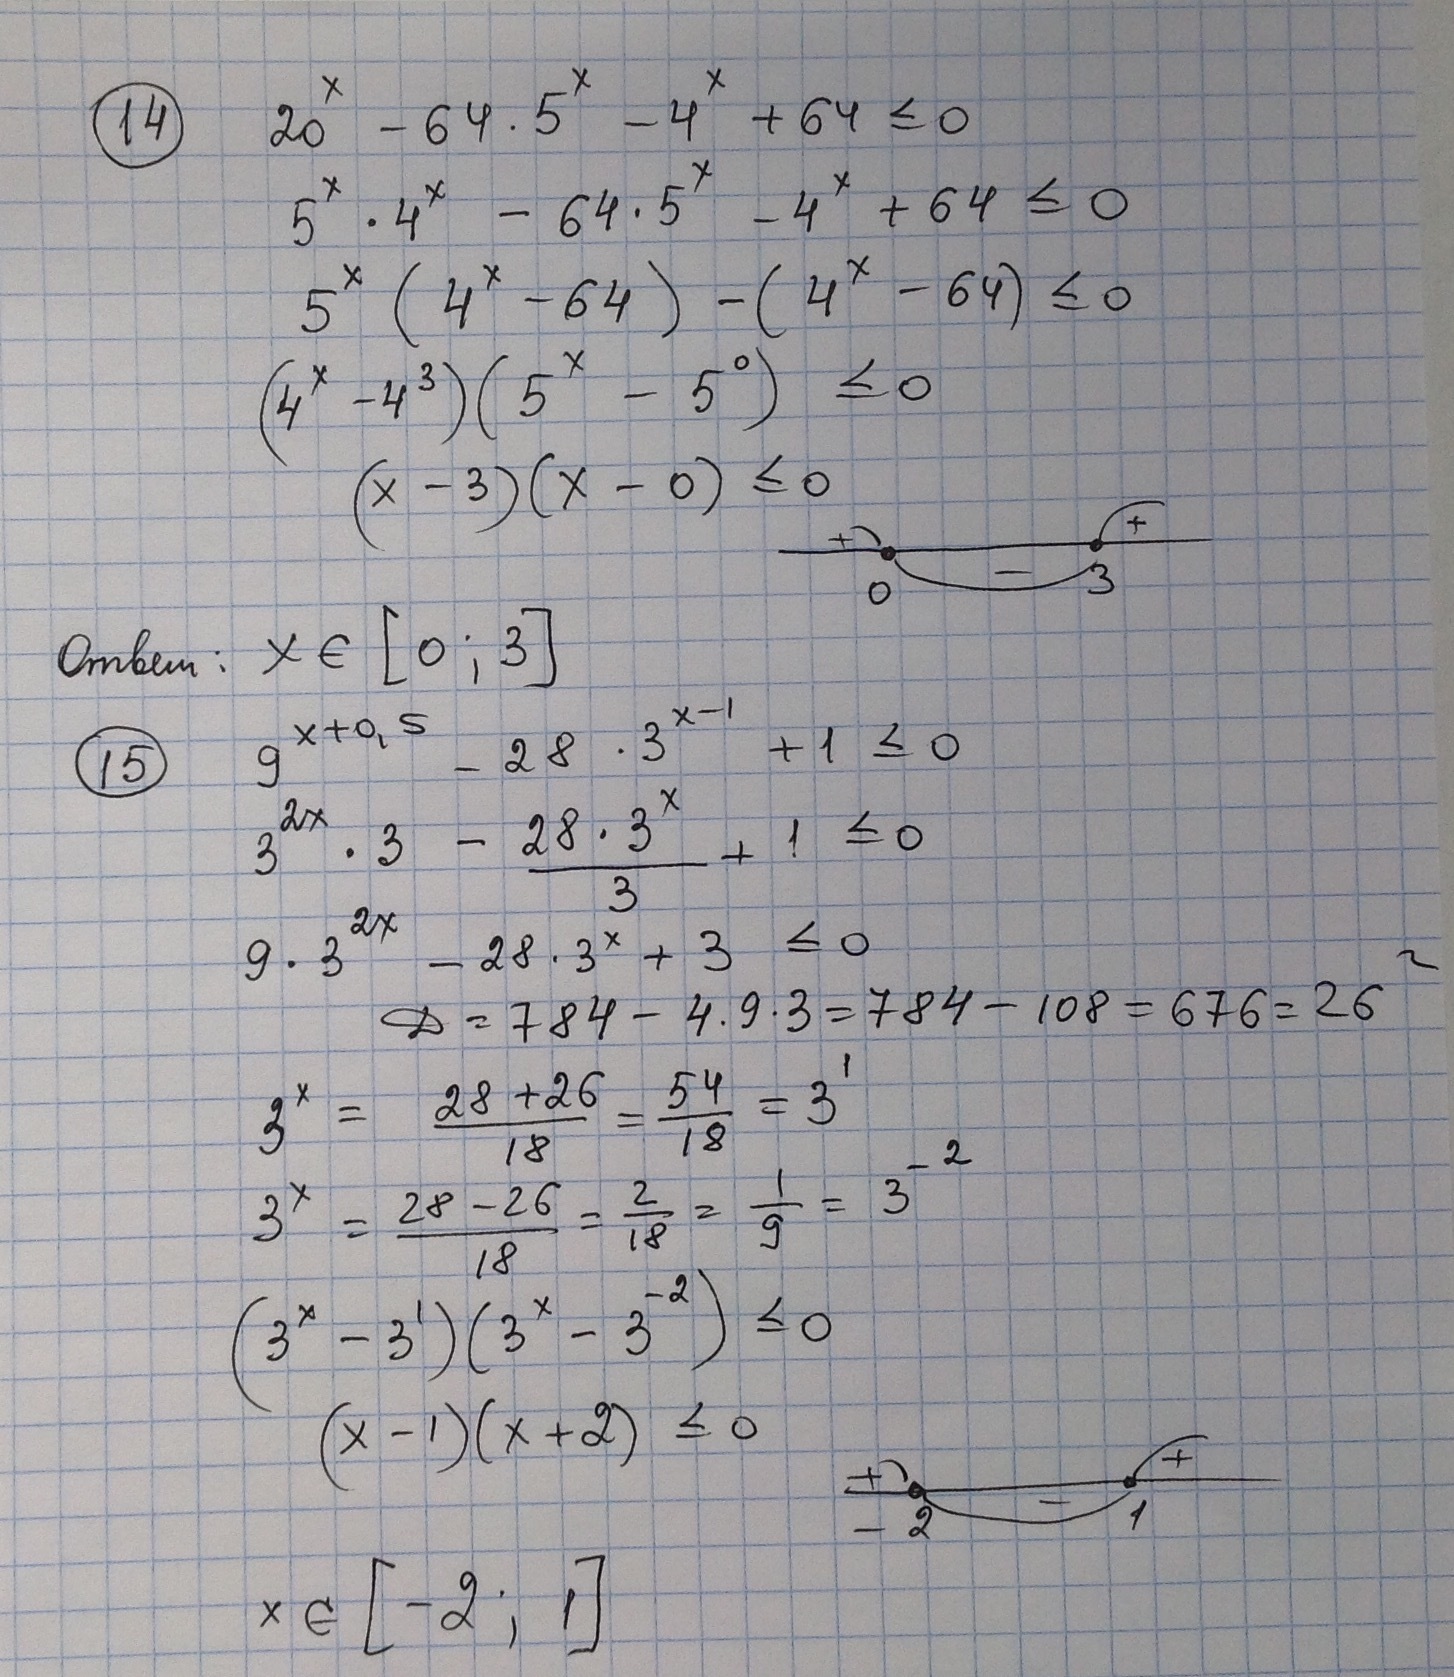 14 20^x - 64 · 5^x - 4^x + 64 ≤ 0
5^x · 4^x - 64 · 5^x - 4^x + 64 ≤ 0
5^x (4^x - 64) - (4^x - 64) ≤ 0
(4^x - 4^3)(5^x - 5^0) ≤ 0
(x - 3)(x - 0) ≤ 0
+ - +
0 3
Ответ: x ∈ [0; 3]
15 9^(x+0,5) - 28 · 3^(x-1) + 1 ≤ 0
3^(2x) · 3 - (28 · 3^x)/3 + 1 ≤ 0
9 · 3^(2x) - 28 · 3^x + 3 ≤ 0
D = 784 - 4 · 9 · 3 = 784 - 108 = 676 = 26^2
3^x = (28 + 26)/18 = 54/18 = 3^1
3^x = (28 - 26)/18 = 2/18 = 1/9 = 3^(-2)
(3^x - 3^1)(3^x - 3^(-2)) ≤ 0
(x - 1)(x + 2) ≤ 0
+ - +
-2 1
x ∈ [-2; 1]